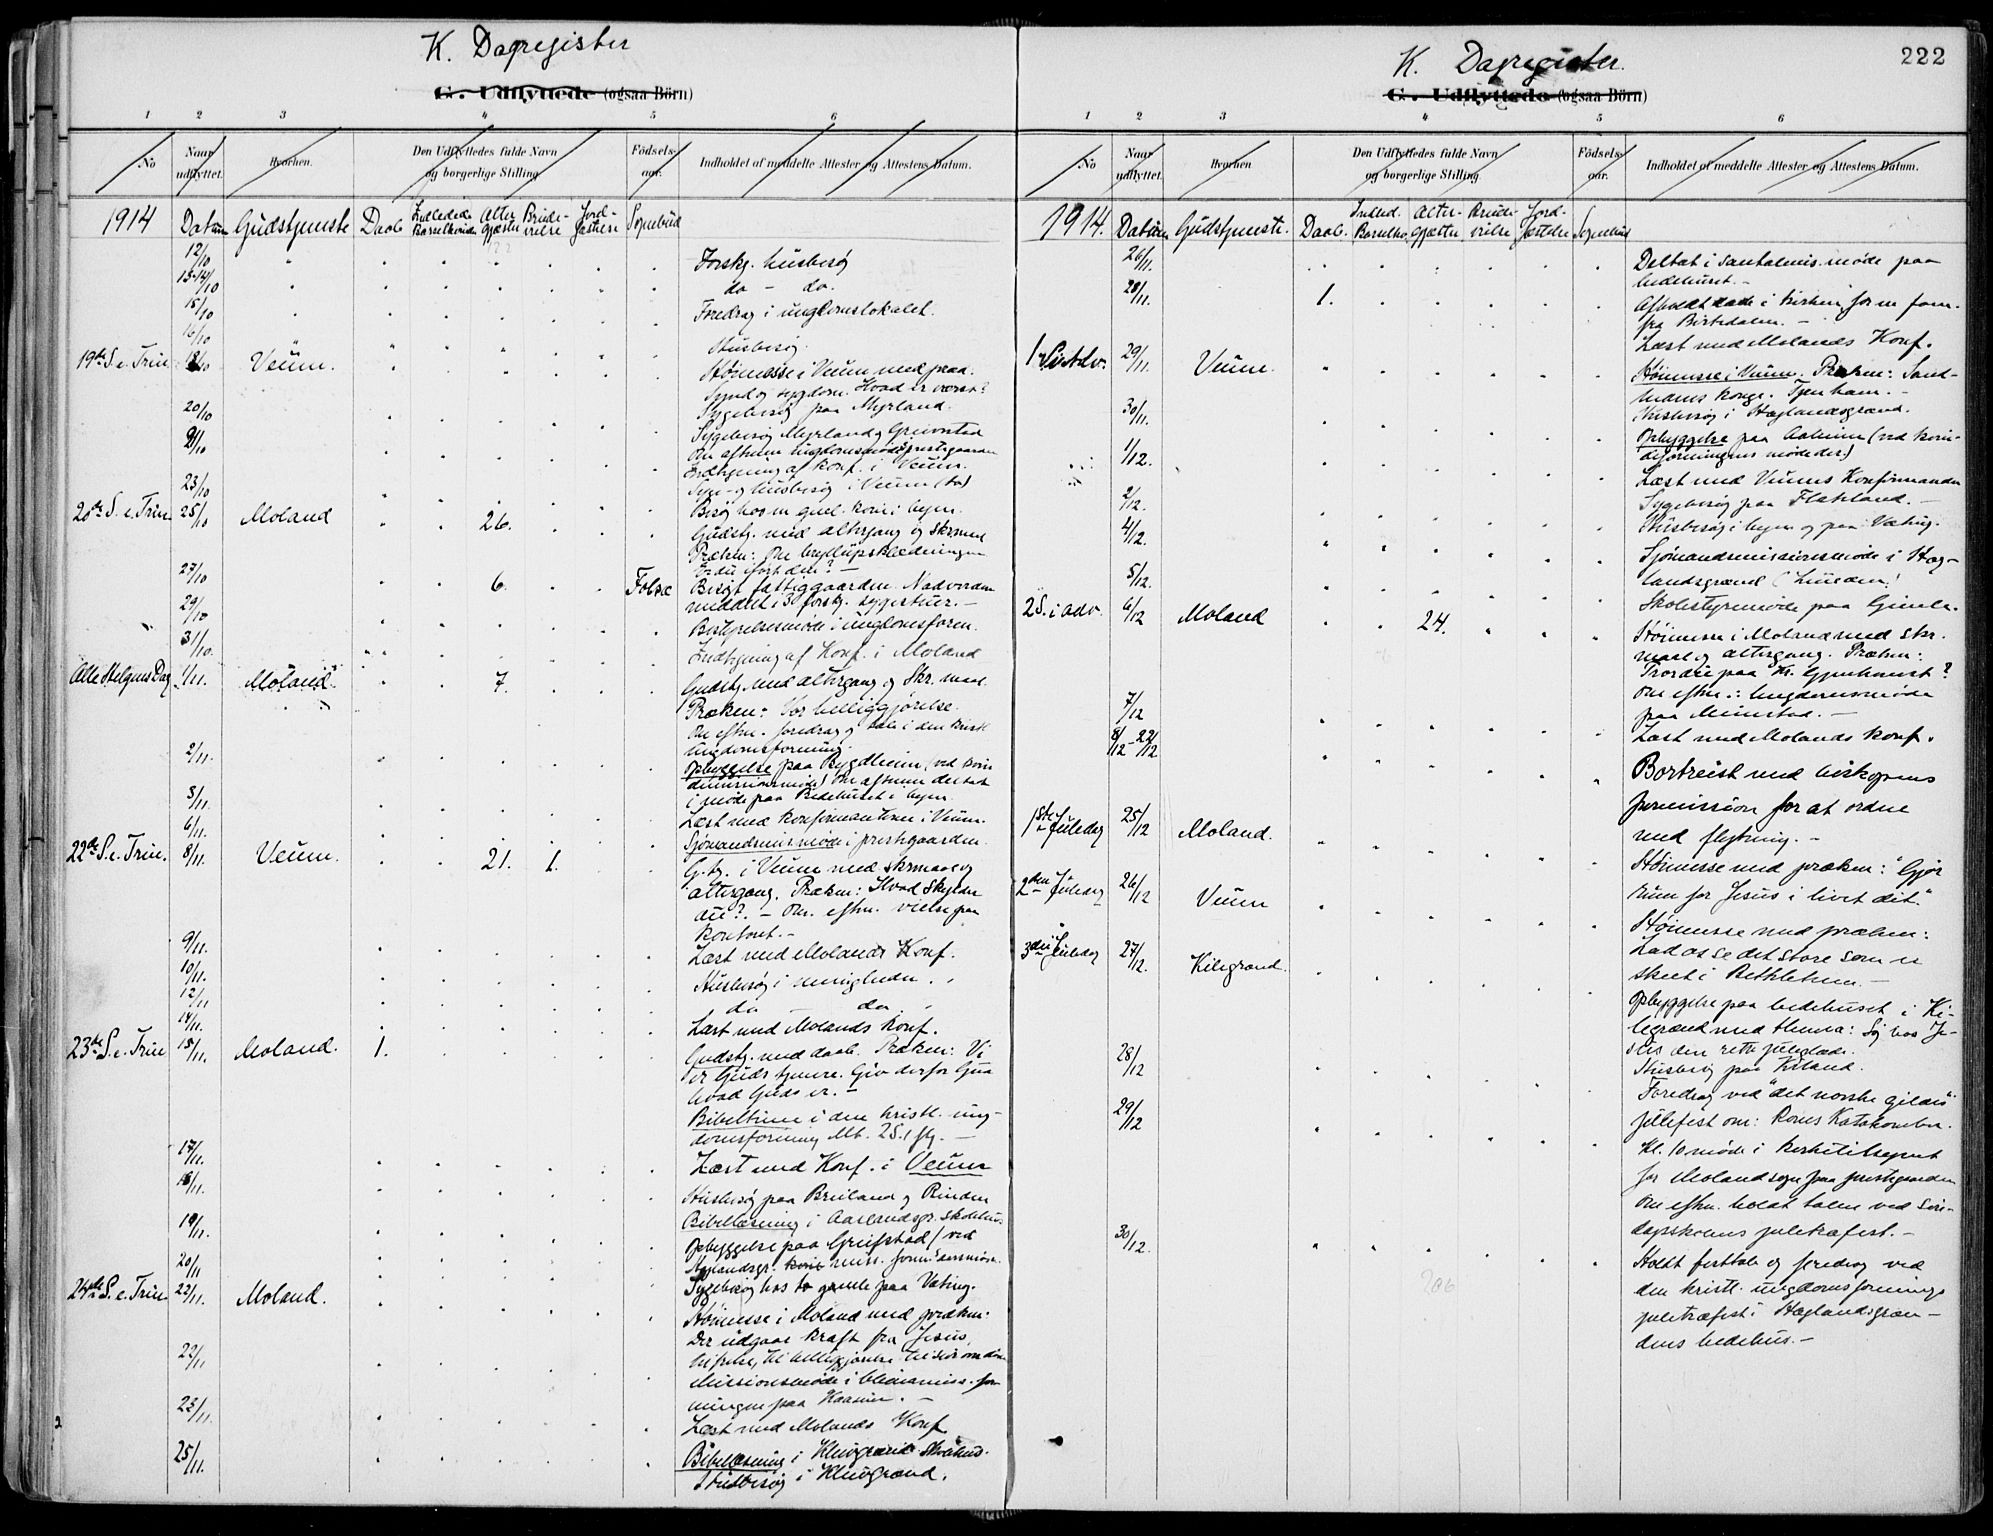 K. Dagregister
G. Udflyttede (ogsaa Börn)
1 2 3 4 5 6
No
Naar udflyttet.
Hvorhen.
Den Udflyttedes fulde Navn og borgerlige Stilling
Födsels-aar.
Indholdet af meddelte Attester og Attestens Datum.
1914 Datum Gudstjeneste Daab Indledede Barselkvinder Altergjæster Brudevielse Jordfæstelse Sognebud
12/10 Forskj. husbesøg
13-14/10 do - do.
15/10 Foredrag i ungdomslokalet.
16/10 Husbesøg.
19de S. e. Trin. 18/10 Veum. Höimesse i Veum med præd.
Synd og sygdom. Hvad er værst?
20/10 Sygebesøg paa Myrland.
21/10 Sygebesøg Myrland og
Om aftenen ungdomsmøde i prestegaarden
Indtegning af konf. i Veum.
23/10 Syge- og husbesøg i Veum
20de S. e. Trin. 25/10 Moland 26.
Gudstj. med altergang og skrmaal
Præken: Om bryllupsklædningen
Er du iført den? -
27/10 6. Besøgt fattiggaarden. Nadveren
meddelt i 3 forskj. sygestuer. -
29/10 Bestyrelsesmøde i ungdomsforen.
31/10. Indtegning af Konf. i Moland
Alle Helgens Dag 1/11. Moland. 7. Gudstj. med altergang og Skr. maal.
Præken: Vor helliggjørelse.
Om eftm. foredrag og tale i den kristl.
ungdomsforening.
2/11. Opbyggelse paa Bygdheim (ved kvin
Om aftenen deltat
i møde paa Bedehuset i byen.
5/11. Læst med konfirmanterne i Veum.
6/11. Sjømandsmis. møde i prestegaarden.
22de S. e. Trin. 8/11. Veum. 21. 1. G. tj. i Veum med skrmaal og
altergang. Præken: Hvad skylder
du? - Om. eftm. vielse paa
kontoret. -
9/11. Læst med Molands Konf.
10/11. Husbesøg i menigheden.
12/11 do do
14/11. Læst med Molands konf.
23de S. e. Trin 15/11. Moland. 1. Gudstj. med daab. Præken: Vi
er Guds tjenere. Giv derfor Gud
hvad Guds er. -
Bibeltime i den kristl. ung-
domsforening Mt. 25.1 flg. -
17/11. Læst med Konf. i Veum
18/11. Husbesøg paa Breiland og Rinden
Bibellæsning i
19/11. Opbyggelse paa Greifstad (ved
20/11 Sygebesøg hos to gamle paa Væting.
24de S. e. Trin. 22/11. Moland. Höimesse i Moland med præken:
Der udgaar kraft fra Jesus
22/11 Missionsmøde i kinamiss. for
ningen paa
23/11. Læst med Molands Konf.
25/11. Bibellæsning i
Husbesøg i
K. Dagregister.
222
G. Udflyttede (ogsaa Börn)
1 2 3 4 5 6
No
Naar udflyttet.
Hvorhen
Den Udflyttedes fulde Navn og borgerlige Stilling
Födsels-aar.
Indholdet af meddelte Attester og Attestens Datum.
1914. Datum Gudstjeneste. Daab. Indled. Barselkv. Altergjæster Brudevielse Jordfæstelse Sognebud
26/11. Deltat i Santalmis. møde paa
bedehuset. -
28/11. 1. Afholdt daab i kirken for en fam.
fra Birtedalen. -
Læst med Molands Konf.
1 S. i Adv. 29/11. Veum. Höimesse i Veum. Præken: Sand-
hedens konge. Tjen ham. -
30/11. Husbesøg i Høglandsgrænd.
1/12. Opbyggelse paa (ved kvin-
deforeningens møde der)
Læst med Veums Konfirmander
2/12. Sygebesøg paa Flatland. -
4/12. Husbesøg i byen og paa Væting.
Sjömandsmissionsmøde i Høg-
landsgrænd
5/12. Skolestyremøde paa Gimle.
2 S. i adv. 6/12 Moland 24. Höimesse i Moland med skr.
maal og altergang. Præken:
Tror du paa Kr. Gjenkomst?
Om eftm.: Ungdomsmøde
paa Mimstad. -
7/12 Læst med Molands konf.
8/12 - 22/12 Bortreist med biskopens
permission for at ordne
med flytning. -
1ste Juledag 25/12 Moland. Höimesse med præken: "Gjør
rum for Jesus i livet dit."
2den Juledag 26/12 Veum Höimesse med præken:
Lad os se det store som er
skeet i Bethlehem. -
3die Juledag 27/12. Kilegrænd. Opbyggelse paa bedehuset i Ki-
legrænd med thema: Søg hos Je-
sus den rette juleglæde.
28/12 Husbesøg paa Kiland.
Foredrag ved "det norske gildes"
29/12 julefest om: Roms Katakomber.
Kl. 10 møde i kirketilsynet
for Moland sogn paa prestegaarden
Om eftm. holdt talen ved søn-
dagsskolens juletræfest. -
30/12. Holdt festtale og foredrag ved
den kristl. ungdomsforenings
juletræfest i Høglandsgræn-
dens bedehus. -
206